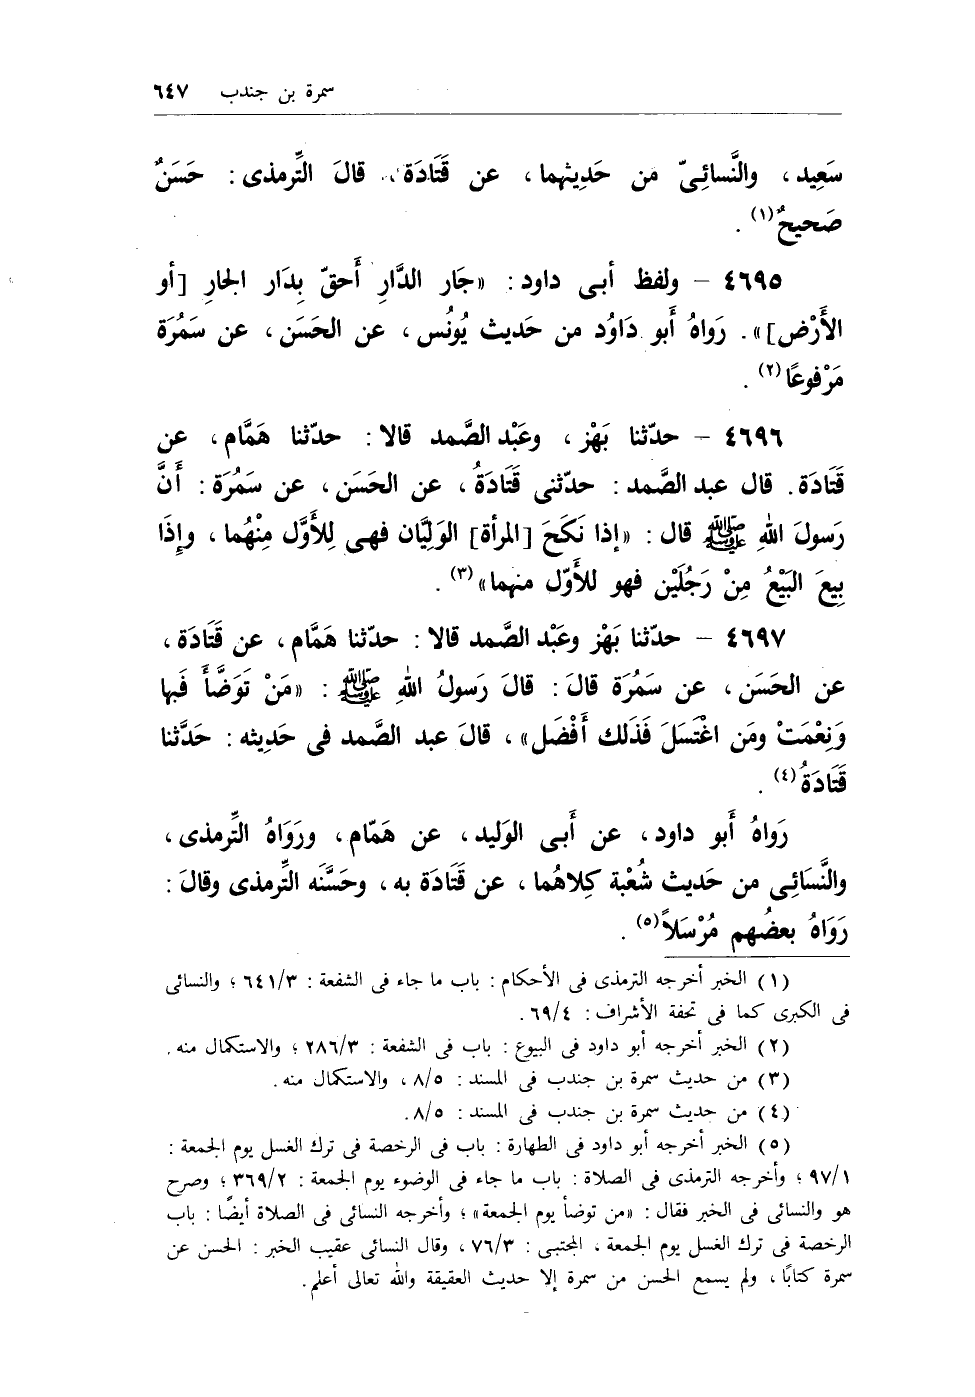 سمرة بن جندب ٦٤٧
سَعِيد ، والنَّسائِىّ من حَدِيثِهما ، عن قَتَادَة ، قالَ التِّرمذى : حَسَنٌ
صَحيحٌ(١) .
٤٦٩٥ – ولفظ أبى داود : «جَار الدَّارِ أَحقّ بِدَار الجارِ [أو
الأَرْض]» . رَواهُ أَبو دَاوُد من حَديث يُونُس ، عن الحَسَن ، عن سَمُرَة
مَرْفوعًا(٢) .
٤٦٩٦ – حدّثنا بَهْز ، وعَبْد الصَّمد قالا : حدّثنا هَمَّام ، عن
قَتَادَة . قال عبد الصَّمد : حدّثنى قَتَادَةُ ، عن الحَسَن ، عن سَمُرَة : أَنَّ
رَسولَ اللهِ ﷺ قال : «إذا نَكَحَ [المرأة] الوَلِيَّان فهى لِلأَوَّل مِنْهُما ، وإِذَا
بِيعَ البَيْعُ مِنْ رَجُلَيْن فهو للأَوّل منهما»(٣) .
٤٦٩٧ – حدّثنا بَهْز وعَبْد الصَّمد قالا : حدّثنا هَمَّام ، عن قَتَادَة ،
عن الحَسَن ، عن سَمُرَة قالَ : قالَ رَسولُ اللهِ ﷺ : «مَنْ تَوَضَّأَ فَبها
وَنِعْمَتْ ومَن اغْتَسَلَ فَذَلك أَفْضَل» ، قالَ عبد الصَّمد فى حَدِيثه : حَدَّثنا
قَتَادَةُ(٤) .
رَواهُ أَبو داود ، عن أَبى الوَليد ، عن هَمَّام ، ورَوَاهُ التِّرمذى ،
والنَّسَائِى من حَديث شُعْبة كِلاهُما ، عن قَتَادَة به ، وحَسَّنَه التِّرمذى وقالَ :
رَوَاهُ بعضُهم مُرْسَلاً(٥) .
(١) الخبر أخرجه الترمذى فى الأحكام : باب ما جاء فى الشفعة : ٦٤١/٣ ؛ والنسائى
فى الكبرى كما فى تحفة الأشراف : ٦٩/٤ .
(٢) الخبر أخرجه أبو داود فى البيوع : باب فى الشفعة : ٢٨٦/٣ ؛ والاستكمال منه .
(٣) من حديث سمرة بن جندب فى المسند : ٨/٥ ، والاستكمال منه .
(٤) من حديث سمرة بن جندب فى المسند : ٨/٥ .
(٥) الخبر أخرجه أبو داود فى الطهارة : باب فى الرخصة فى ترك الغسل يوم الجمعة :
٩٧/١ ؛ وأخرجه الترمذى فى الصلاة : باب ما جاء فى الوضوء يوم الجمعة : ٣٦٩/٢ ؛ وصرح
هو والنسائى فى الخبر فقال : «من توضأ يوم الجمعة» ؛ وأخرجه النسائى فى الصلاة أيضًا : باب
الرخصة فى ترك الغسل يوم الجمعة ، المجتبى : ٧٦/٣ ، وقال النسائى عقيب الخبر : الحسن عن
سمرة كتابًا ، ولم يسمع الحسن من سمرة إلا حديث العقيقة والله تعالى أعلم .